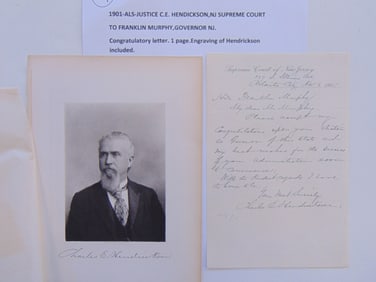 1901-ALS-JUSTICE C.E. HENDICKSON,NJ SUPREME COURT
TO FRANKLIN MURPHY,GOVERNOR NJ.
Congratulatory letter. 1 page.Engraving of Hendrickson
included.
Charles E Hendrickson
Supreme Court of New Jersey
Atlantic City Nov
Hon Franklin Murphy
My dear Mr Murphy
Please accept my
Congratulations upon your election
as Governor of this State and
my best wishes for the success
of your administration soon
to commence.
With the kindest regards I have
to be
Yours Most Sincerely
Charles E Hendrickson